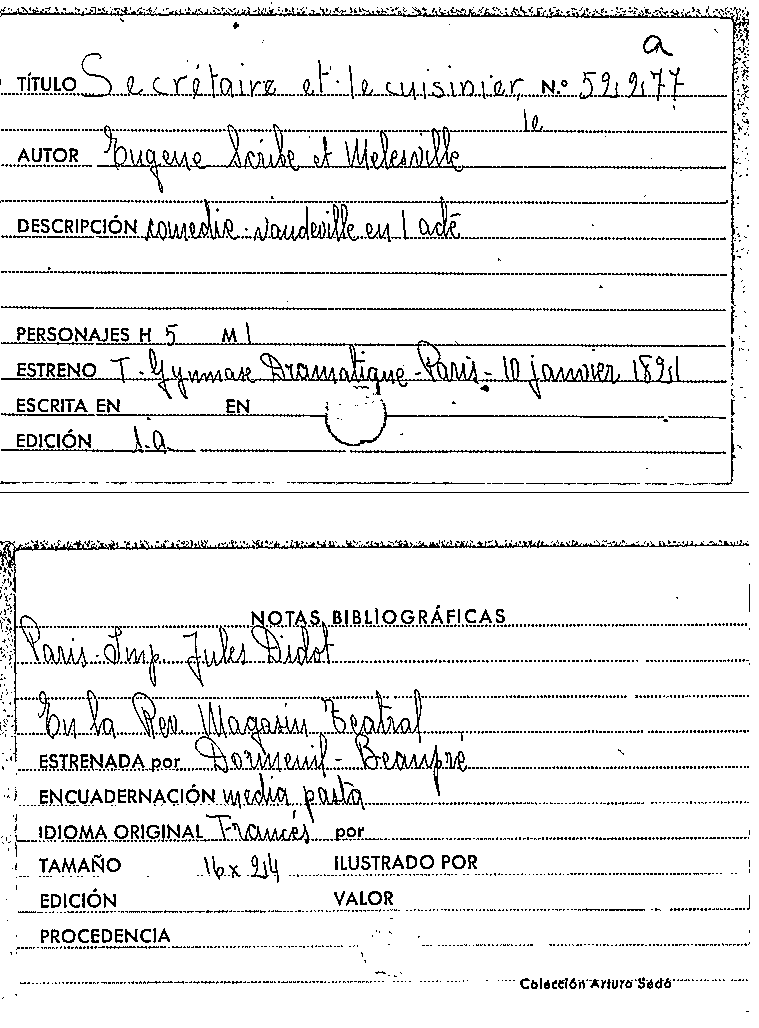 a
TÍTULO Secrétaire et le cuisinier, N.º 52277
le
AUTOR Eugene Scribe et Melesville
DESCRIPCIÓN comedie-vaudeville en 1 acte
PERSONAJES H 5 M 1
ESTRENO T. Gymnase Dramatique - Paris - 10 janvier 1821
ESCRITA EN EN
EDICIÓN 1.a
NOTAS BIBLIOGRÁFICAS
Paris. Imp. Jules Didot
En la Rev. Magasin Teatral
ESTRENADA por Dormeuil - Beaupré
ENCUADERNACIÓN media pasta
IDIOMA ORIGINAL Francés por
TAMAÑO 16 x 24 ILUSTRADO POR
EDICIÓN VALOR
PROCEDENCIA
Colección Arturo Sedó